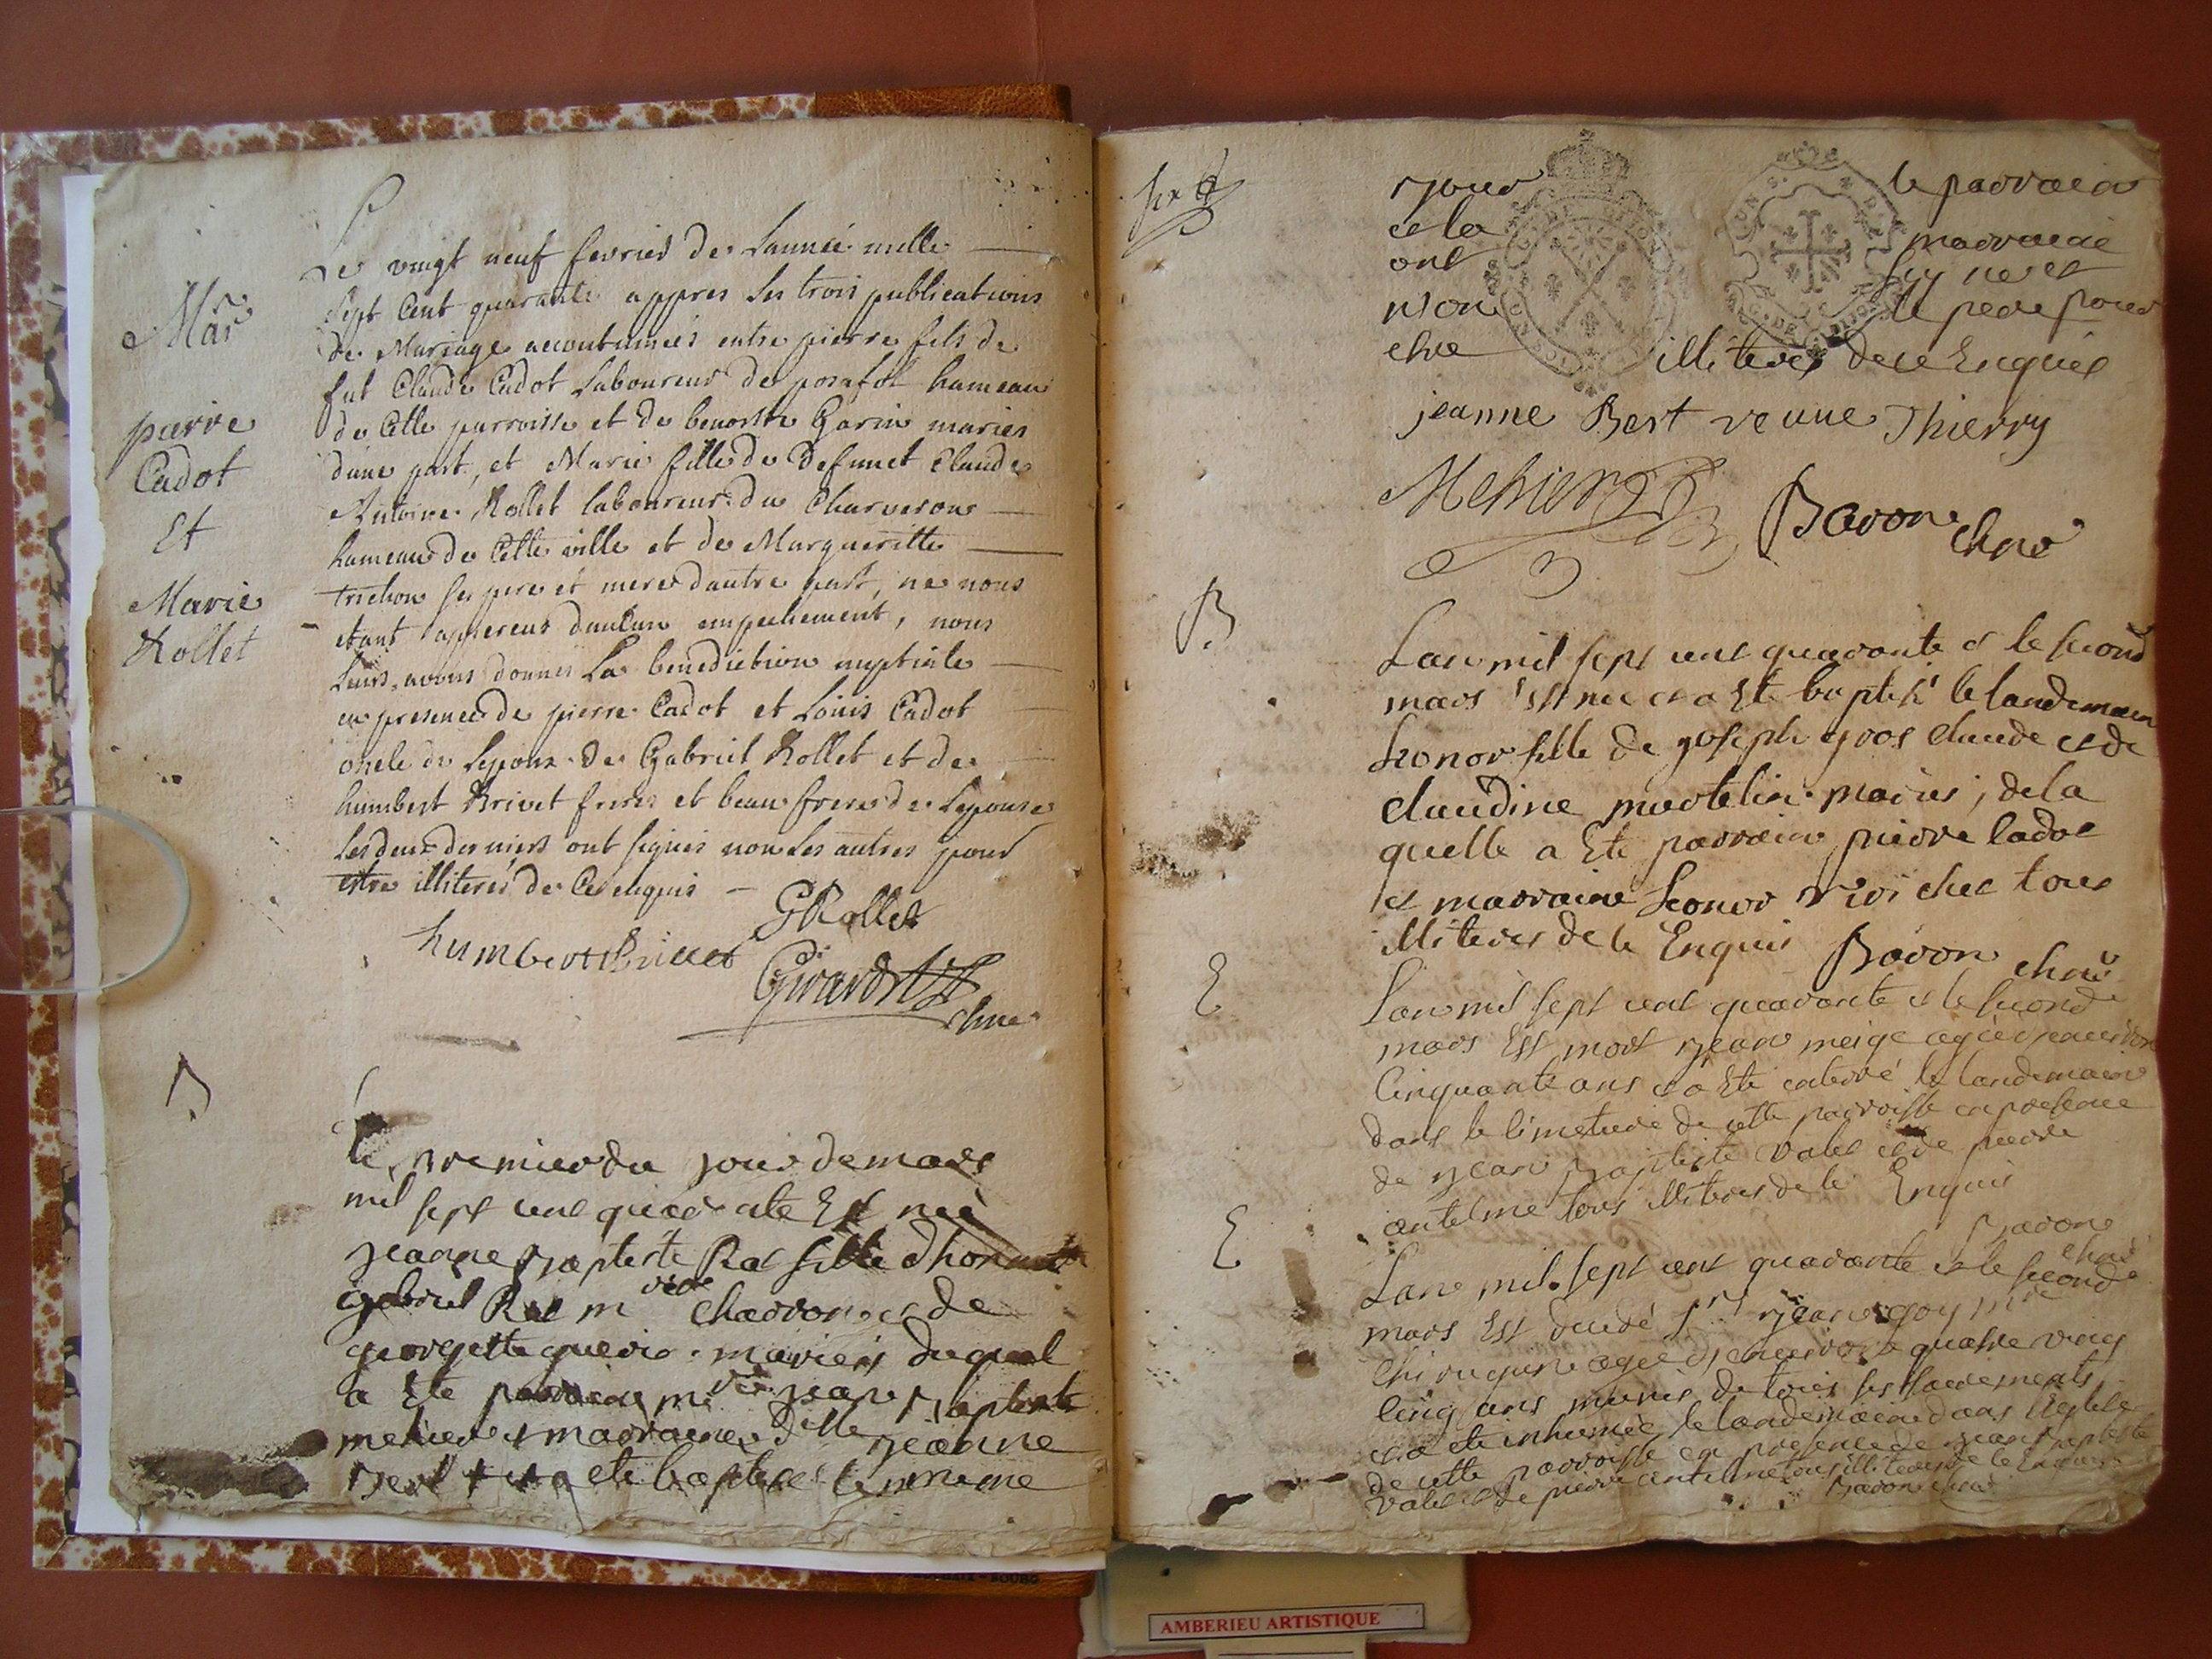 Mar
pierre
Cadot
Et
Marie
Rollet
Le vingt neuf fevrier de Lannée mille
sept Cent quarante appres les trois publications
de Mariage accoutumées entre pierre fils de
fut Claude Cadot Laboureur de posafol hameau
de Cette parroisse et de benoiste Garin mariés
dune part, et Marie fille de Defunct Claude
Antoine Rollet laboureur du Charveron
hameau de Cette ville et de Margueritte
trichon ses pere et mere dautre part, ne nous
etant appereus daucun empechement, nous
Leurs avons donnés La benediction nuptiale
en presence de pierre Cadot et Loüis Cadot
oncle de Lepoux de Gabriel Rollet et de
humbert Brivet freres et beau frere de Lepouse
Les deux derniers ont signés non Les autres pour
estre illiterés de Ce enquis
GRollet
humbert Brivet
Girard
B
le premier du jour de mars
mil sept cent quarante Est née
jeanne Baptiste Rat fille dhonnete
gabriel Rat m charron et de
georgette mariés duquel
a Ete parrain jean Baptiste
mehier et marraine dlle jeanne
Bert et a ete baptisé le meme
jour
et la
ont
non
etre
le parrain
marraine
signer et
le pere pour
illiteres de ce Enquis
jeanne Bert veuve Thierry
Mehier
Baron
B
Lan mil sept cent quarante et le second
mars Est née et a Ete baptisé le landemain
Leonor fille de joseph gros claude et de
claudine martelin mariés, de la
quelle a Ete parrain pierre Cadot
et marraine Leonor tous
illiteres de ce Enquis Baron
E
Lan mil sept cent quarante et le second
mars Est mort jean meige agé denviron
Cinquante ans et a Ete enterré le landemain
dans le cimetiere de cette parroisse en presence
de jean Baptiste valet et de pierre
antelme tous illiteres de ce Enquis
Baron
E
Lan mil sept cent quarante et le second
mars Est decedé Sr jean goy mre
chirurgien agé denviron quatre vingt
cinq ans munis de tous ses sacrements
et a ete inhumé le landemain dans leglise
de cette parroisse en presence de jean Baptiste
valet et de pierre antelme tous illiteres de ce Enquis
Baron
AMBERIEU ARTISTIQUE